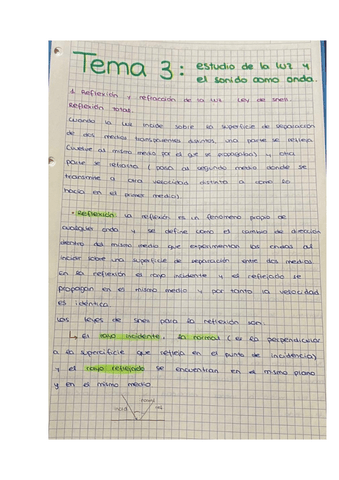 Tema 3: estudio de la luz y
el sonido como onda.
1. Reflexión y refracción de la luz. Ley de Snell.
Reflexión total.
Cuando la luz incide sobre la superficie de separación
de dos medios transparentes distintos, una parte se refleja
(vuelve al mismo medio por el que se propagaba) y otra
parte se refracta (pasa al segundo medio donde se
transmite a otra velocidad distinta a como lo
hacía en el primer medio).
· Reflexión: la reflexión es un fenómeno propio de
cualquier onda y se define como el cambio de dirección
dentro del mismo medio que experimentan las ondas al
incidir sobre una superficie de separación entre dos medios
En la reflexión el rayo incidente y el reflejado se
propagan en el mismo medio y por tanto la velocidad
es idéntica.
Las leyes de Snell para la reflexión son:
↳ El rayo incidente, la normal (es la perpendicular
a la superficie que refleja en el punto de incidencia)
y el rayo reflejado se encuentran en el mismo plano
y en el mismo medio.
normal
incid